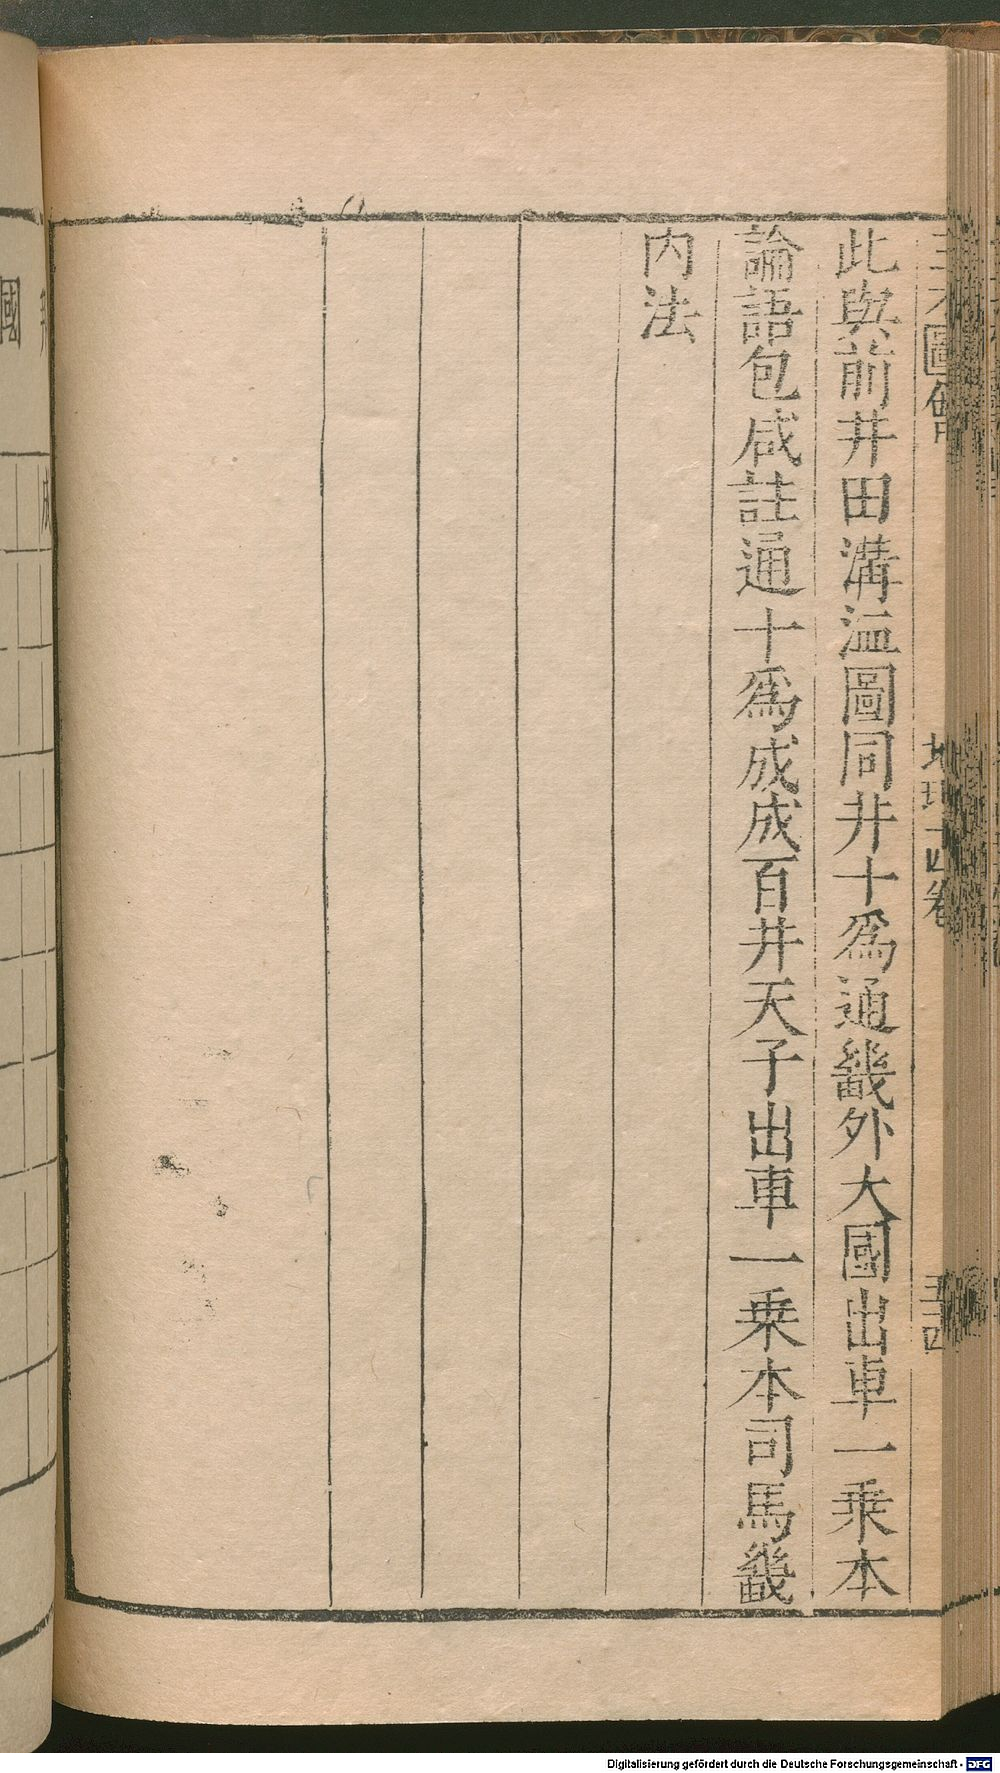 三才圖會 地理十四卷 五四
此與前井田溝洫圖同井十爲通畿外大國出車一乗本
論語包咸註通十爲成成百井天子出車一乗本司馬畿
内法
國
Digitalisierung gefördert durch die Deutsche Forschungsgemeinschaft - DFG